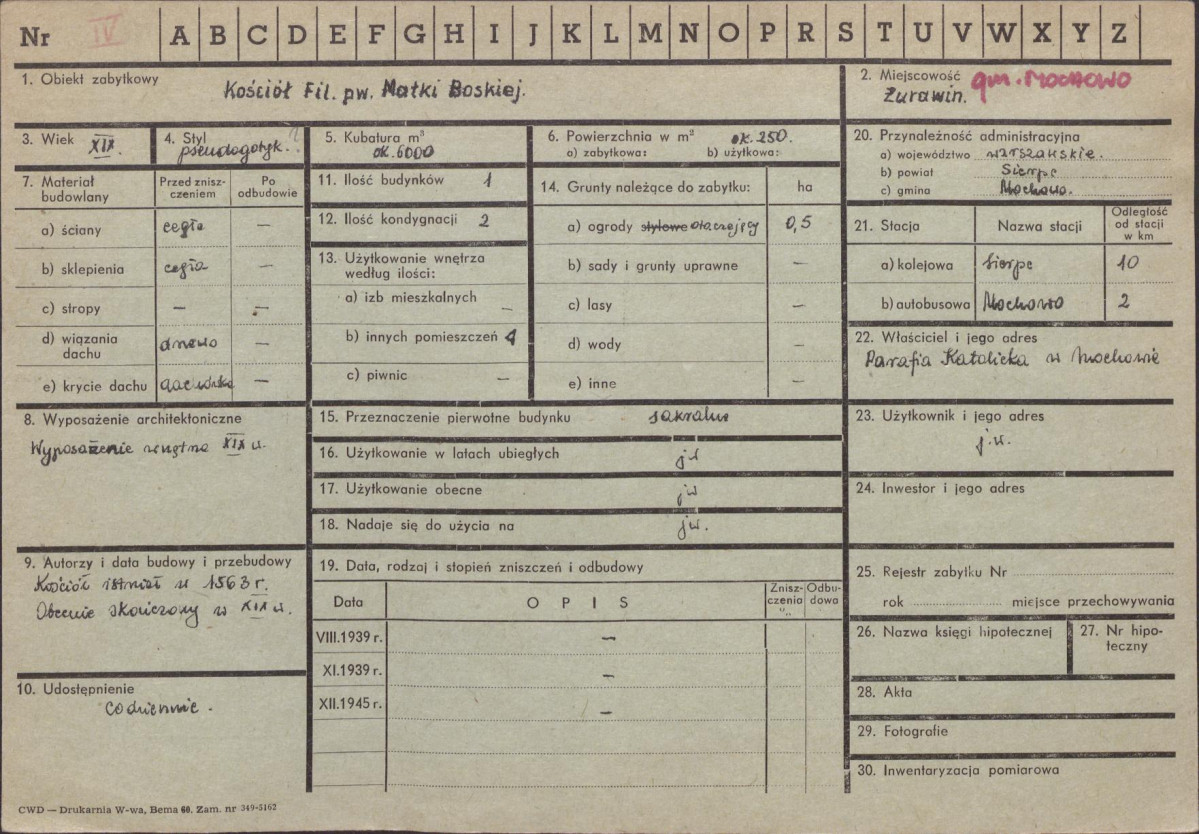 Nr IV A B C D E F G H I J K L M N O P R S T U V W X Y Z
1. Obiekt zabytkowy
Kościół Fil. pw. Matki Boskiej.
2. Miejscowość gm. MOCHOWO
Żurawin.
3. Wiek XIX.
4. Styl pseudogotyk. ?
5. Kubatura m³
ok. 6000
6. Powierzchnia w m² ok. 250.
a) zabytkowa: b) użytkowa:
7. Materiał budowlany
Przed znisz-czeniem
Po odbudowie
a) ściany cegła —
b) sklepienia cegła —
c) stropy — —
d) wiązania dachu drewno —
e) krycie dachu dachówka —
8. Wyposażenie architektoniczne
Wyposażenie wnętrza XIX w.
9. Autorzy i data budowy i przebudowy
Kościół istniał w 1563 r.
Obecnie skończony w XIX w.
10. Udostępnienie
codziennie.
11. Ilość budynków 1
12. Ilość kondygnacji 2
13. Użytkowanie wnętrza
według ilości:
a) izb mieszkalnych —
b) innych pomieszczeń 4
c) piwnic —
14. Grunty należące do zabytku: ha
a) ogrody stylowe otaczający 0,5
b) sady i grunty uprawne —
c) lasy —
d) wody —
e) inne —
15. Przeznaczenie pierwotne budynku sakralne
16. Użytkowanie w latach ubiegłych jw
17. Użytkowanie obecne jw
18. Nadaje się do użycia na jw.
19. Data, rodzaj i stopień zniszczeń i odbudowy
Data OPIS Znisz-czenia "/„ Odbu-dowa
VIII.1939 r. —
XI.1939 r. —
XII.1945 r. —
20. Przynależność administracyjna
a) województwo warszawskie.
b) powiat Sierpc
c) gmina Mochowo.
21. Stacja Nazwa stacji Odległość od stacji w km
a) kolejowa Sierpc 10
b) autobusowa Mochowo 2
22. Właściciel i jego adres
Parafia Katolicka w Mochowie
23. Użytkownik i jego adres
j.w.
24. Inwestor i jego adres
25. Rejestr zabytku Nr
rok miejsce przechowywania
26. Nazwa księgi hipotecznej
27. Nr hipo-
teczny
28. Akta
29. Fotografie
30. Inwentaryzacja pomiarowa
CWD — Drukarnia W-wa, Bema 60. Zam. nr 349-5162